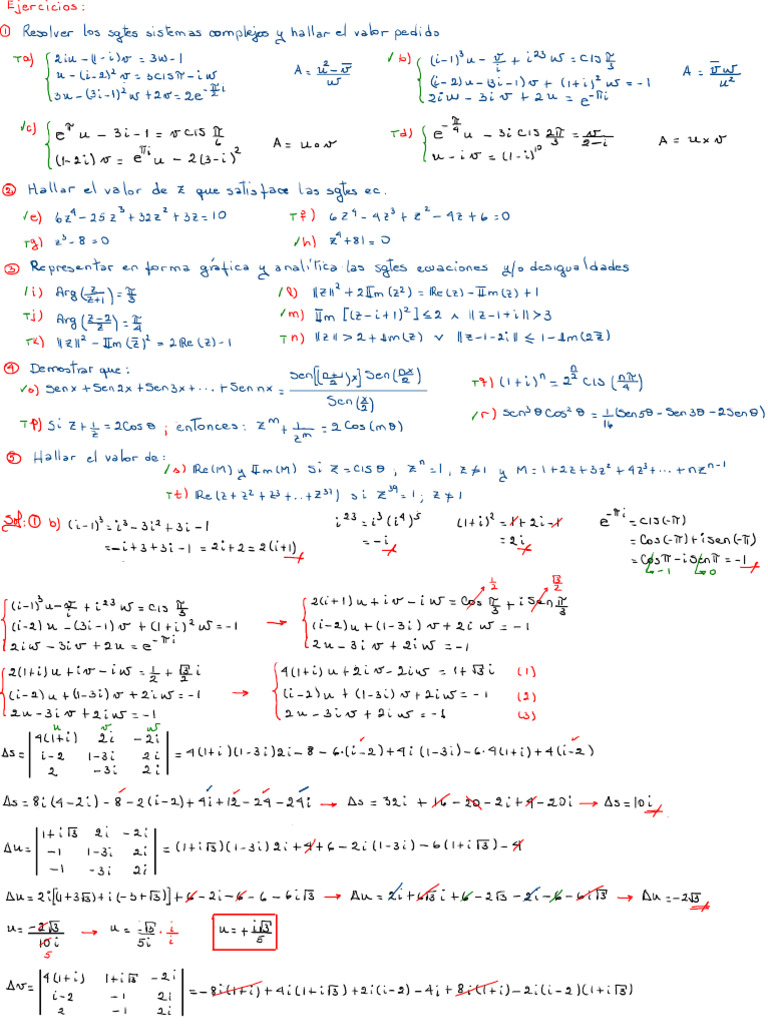 Ejercicios:
① Resolver los sgtes sistemas complejos y hallar el valor pedido
Ta) { 2iu - (1-i)v = 3w - 1
u - (i-2)²v = 3cisπ - iw
3u - (3i-1)²w + 2v = 2e^(-π/2 i)
A = (u² - v̅)/w
✓b) { (i-1)³u - v/i + i²³w = cis π/3
(i-2)u - (3i-1)v + (1+i)²w = -1
2iw - 3iv + 2u = e^(-πi)
A = v̅w/u²
✓c) { e^π u - 3i - 1 = v cis π/6
(1-2i)v = e^(πi) u - 2(3-i)²
A = u∘v
Td) { e^(-π/4) u - 3i cis 2π/3 = v/(2-i)
u - iv = (1-i)¹⁰
A = u×v
② Hallar el valor de z que satisface las sgtes ec.
✓e) 6z⁴ - 25z³ + 32z² + 3z = 10
Tf) 6z⁴ - 4z³ + z² - 4z + 6 = 0
Tg) z³ - 8 = 0
✓h) z⁴ + 81 = 0
③ Representar en forma gráfica y analítica las sgtes ecuaciones y/o desigualdades
✓i) Arg(z/(z+1)) = π/3
✓l) ||z||² + 2Im(z²) = Re(z) - Im(z) + 1
Tj) Arg((z-2)/z) = π/4
✓m) Im[(z-i+1)²] ≤ 2 ∧ ||z-1+i|| > 3
Tk) ||z||² - Im(z̅)² = 2Re(z) - 1
Tn) ||z|| > 2 + Im(z) ∨ ||z-1-2i|| ≤ 1 - Im(2z̅)
④ Demostrar que:
✓o) Senx + Sen2x + Sen3x + ... + Sen nx = Sen[((n+1)/2)x] Sen(nx/2) / Sen(x/2)
Tq) (1+i)ⁿ = 2^(n/2) cis(nπ/4)
Tp) Si z + 1/z = 2Cosθ ; entonces: z^m + 1/z^m = 2Cos(mθ)
✓r) Sen³θ Cos²θ = 1/16 (Sen5θ - Sen3θ - 2Senθ)
⑤ Hallar el valor de:
✓s) Re(M) y Im(M) si z = cisθ ; zⁿ = 1, z ≠ 1 y M = 1 + 2z + 3z² + 4z³ + ... + nz^(n-1)
Tt) Re(z + z² + z³ + ... + z³⁷) si z³⁹ = 1 ; z ≠ 1
Sol: ① b) (i-1)³ = i³ - 3i² + 3i - 1
= -i + 3 + 3i - 1 = 2i + 2 = 2(i+1)
i²³ = i³(i⁴)⁵
= -i
(1+i)² = 1 + 2i - 1
= 2i
e^(-πi) = cis(-π)
= Cos(-π) + iSen(-π)
= Cosπ - iSenπ = -1
-1 0
{ (i-1)³u - v/i + i²³w = cis π/3
(i-2)u - (3i-1)v + (1+i)²w = -1
2iw - 3iv + 2u = e^(-πi)
→ { 2(i+1)u + iv - iw = Cos π/3 + iSen π/3
1/2 √3/2
(i-2)u + (1-3i)v + 2iw = -1
2u - 3iv + 2iw = -1
{ 2(1+i)u + iv - iw = 1/2 + √3/2 i
(i-2)u + (1-3i)v + 2iw = -1
2u - 3iv + 2iw = -1
→ { 4(1+i)u + 2iv - 2iw = 1 + √3i (1)
(i-2)u + (1-3i)v + 2iw = -1 (2)
2u - 3iv + 2iw = -1 (3)
u v w
Δs = | 4(1+i) 2i -2i |
| i-2 1-3i 2i |
| 2 -3i 2i |
= 4(1+i)(1-3i)2i - 8 - 6·(i-2) + 4i(1-3i) - 6·4(1+i) + 4(i-2)
Δs = 8i(4-2i) - 8 - 2(i-2) + 4i + 12 - 24 - 24i → Δs = 32i + 16 - 20 - 2i + 4 - 20i → Δs = 10i
Δu = | 1+i√3 2i -2i |
| -1 1-3i 2i |
| -1 -3i 2i |
= (1+i√3)(1-3i)2i + 4 + 6 - 2i(1-3i) - 6(1+i√3) - 4
Δu = 2i[(1+3√3) + i(-3+√3)] + 6 - 2i - 6 - 6 - 6i√3 → Δu = 2i + 6√3i + 6 - 2√3 - 2i - 6 - 6i√3 → Δu = -2√3
u = -2√3/10i → u = -√3/5i · i/i
5
u = + i√3/5
Δv = | 4(1+i) 1+i√3 -2i |
| i-2 -1 2i |
| 2 -1 2i |
= -8i(1+i) + 4i(1+i√3) + 2i(i-2) - 4i + 8i(1+i) - 2i(i-2)(1+i√3)